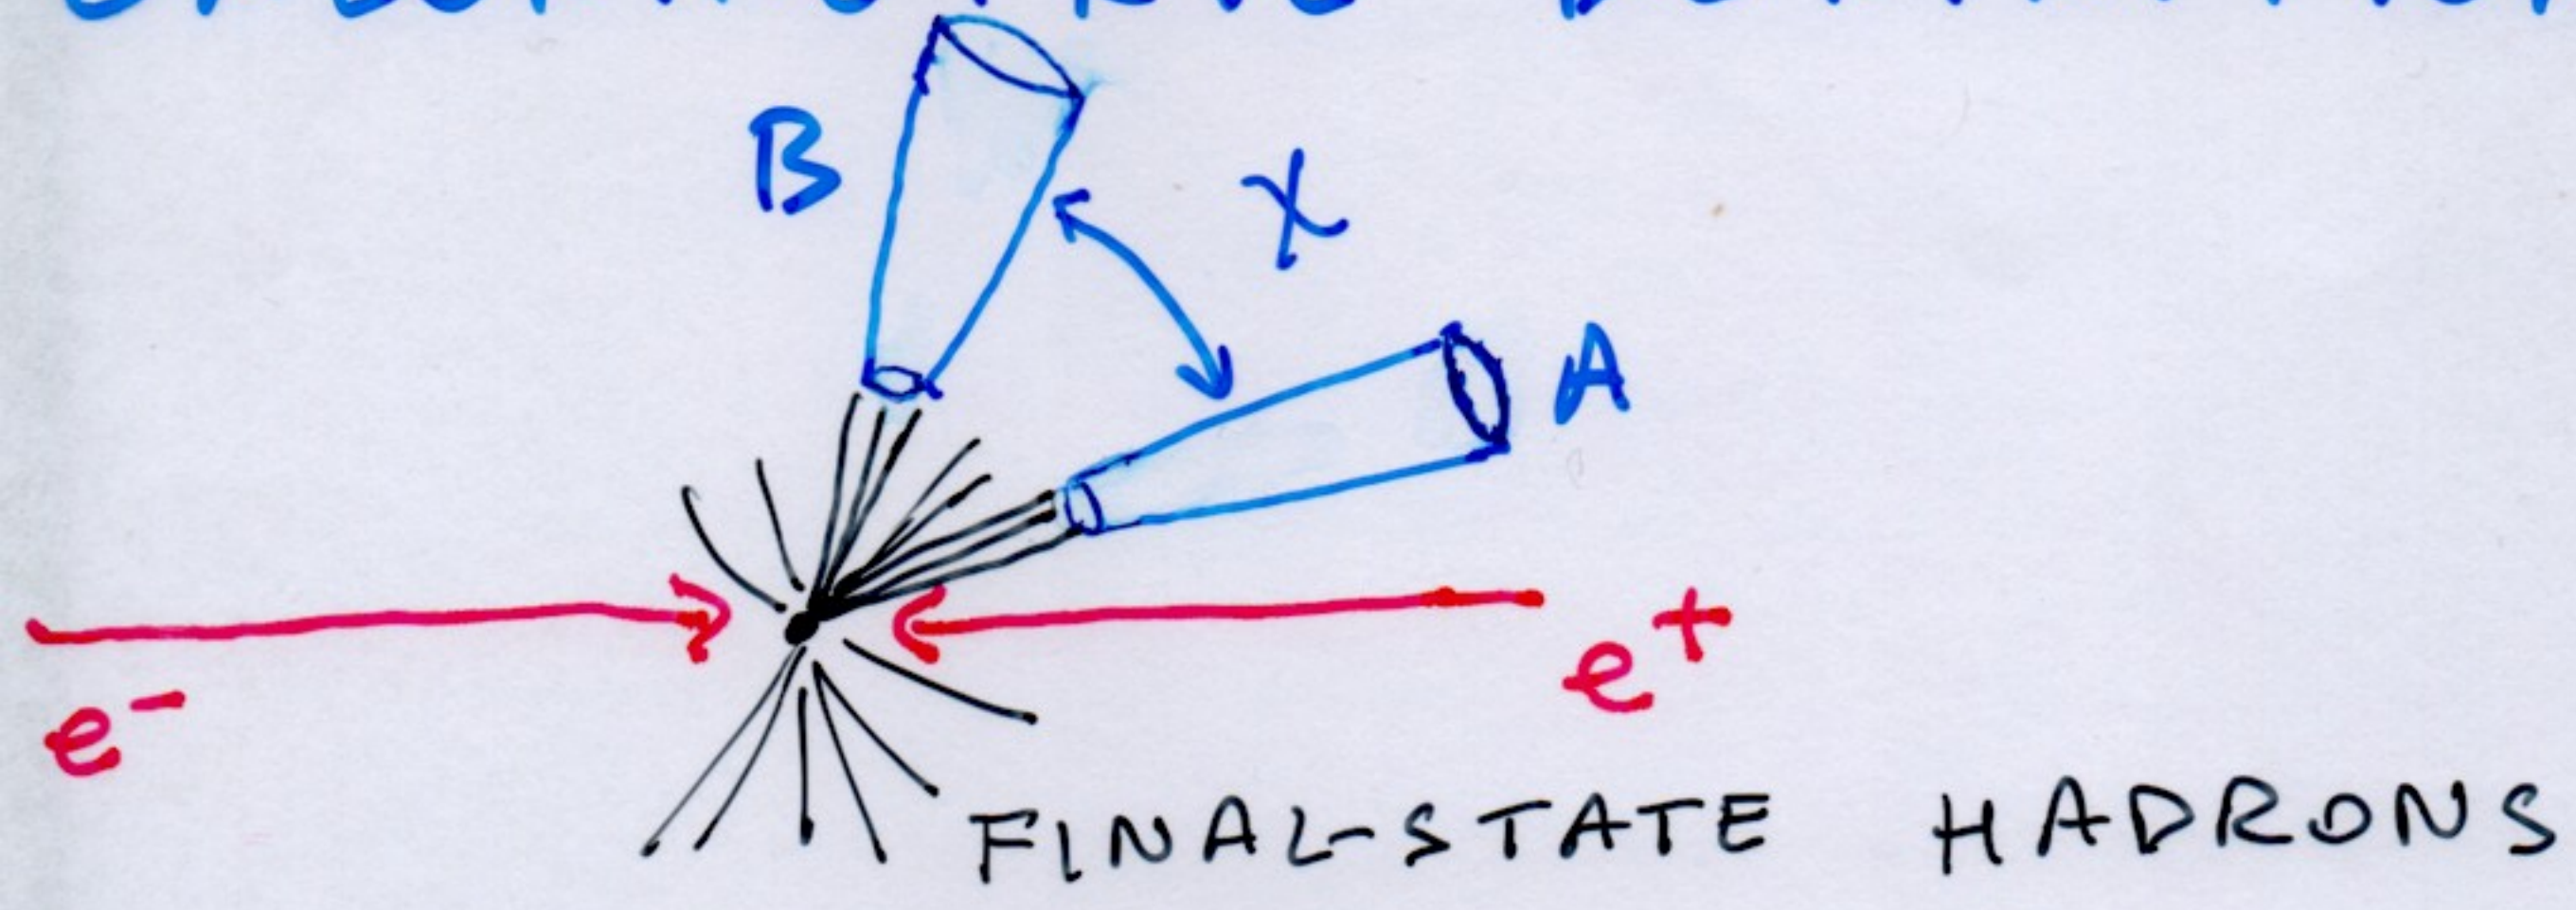 B
χ
A
e⁻
e⁺
FINAL-STATE HADRONS